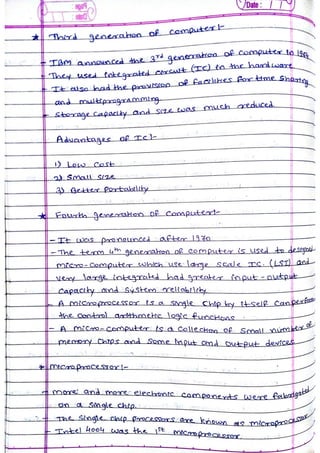 Date:
★ Third generation of computer:-
- IBM announced the 3rd generation of computer in
- They used Integrated circuit (IC) in the hardware
- It also had the provision of facilities for time sharing
and multiprogramming.
- storage capacity and size was much reduced.
Advantages of IC:-
1) Low cost
2) Small size
3) Better Portability
★ Fourth generation of computer:-
- It was pronounced after 1970
- The term 4th generation of computer is used to
micro-computer which use large scale IC. (LSI) and
very large integrated had greater input-output
capacity and system reliability.
- A microprocessor is a single chip by itself can perform
the control arithmetic logic functions.
- A micro-computer is a collection of small number of
memory chips and some Input and output devices
★ microprocessor:-
- more and more electronic components were
on a single chip.
- The single chip processors are known as microprocessor
- Intel 4004 was the 1st microprocessor.